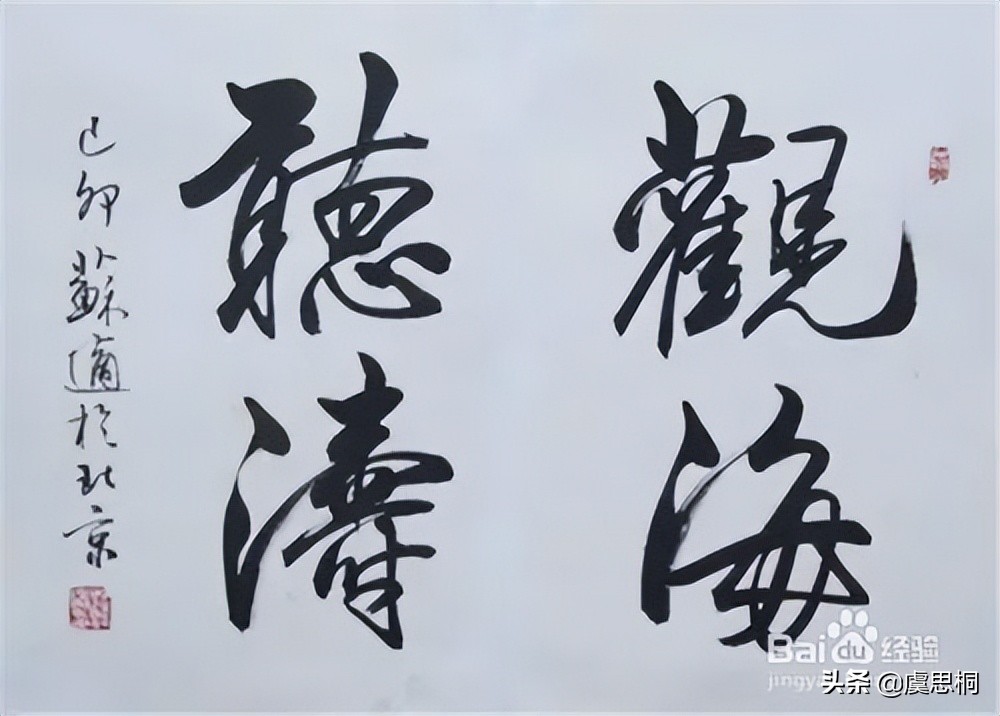 觀海
聽濤
己卯蘇適於北京
Baidu 经验
头条 @虞思桐